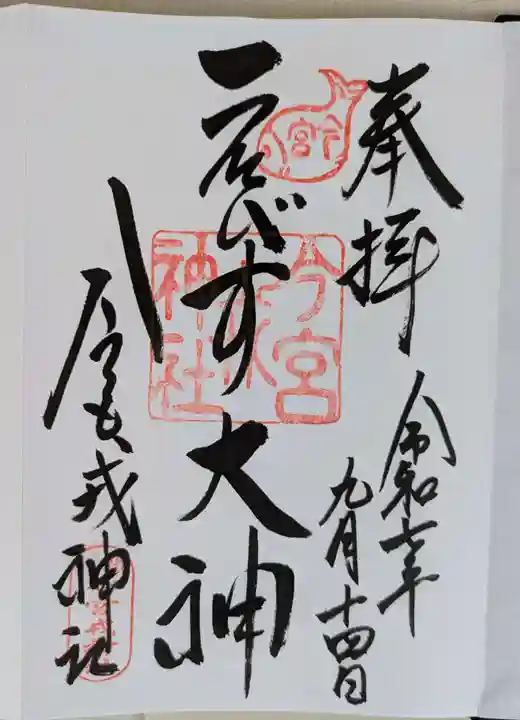 奉拝
令和 年
九月十四日
ゑびす大神
今宮戎神社
今宮
今宮戎神社